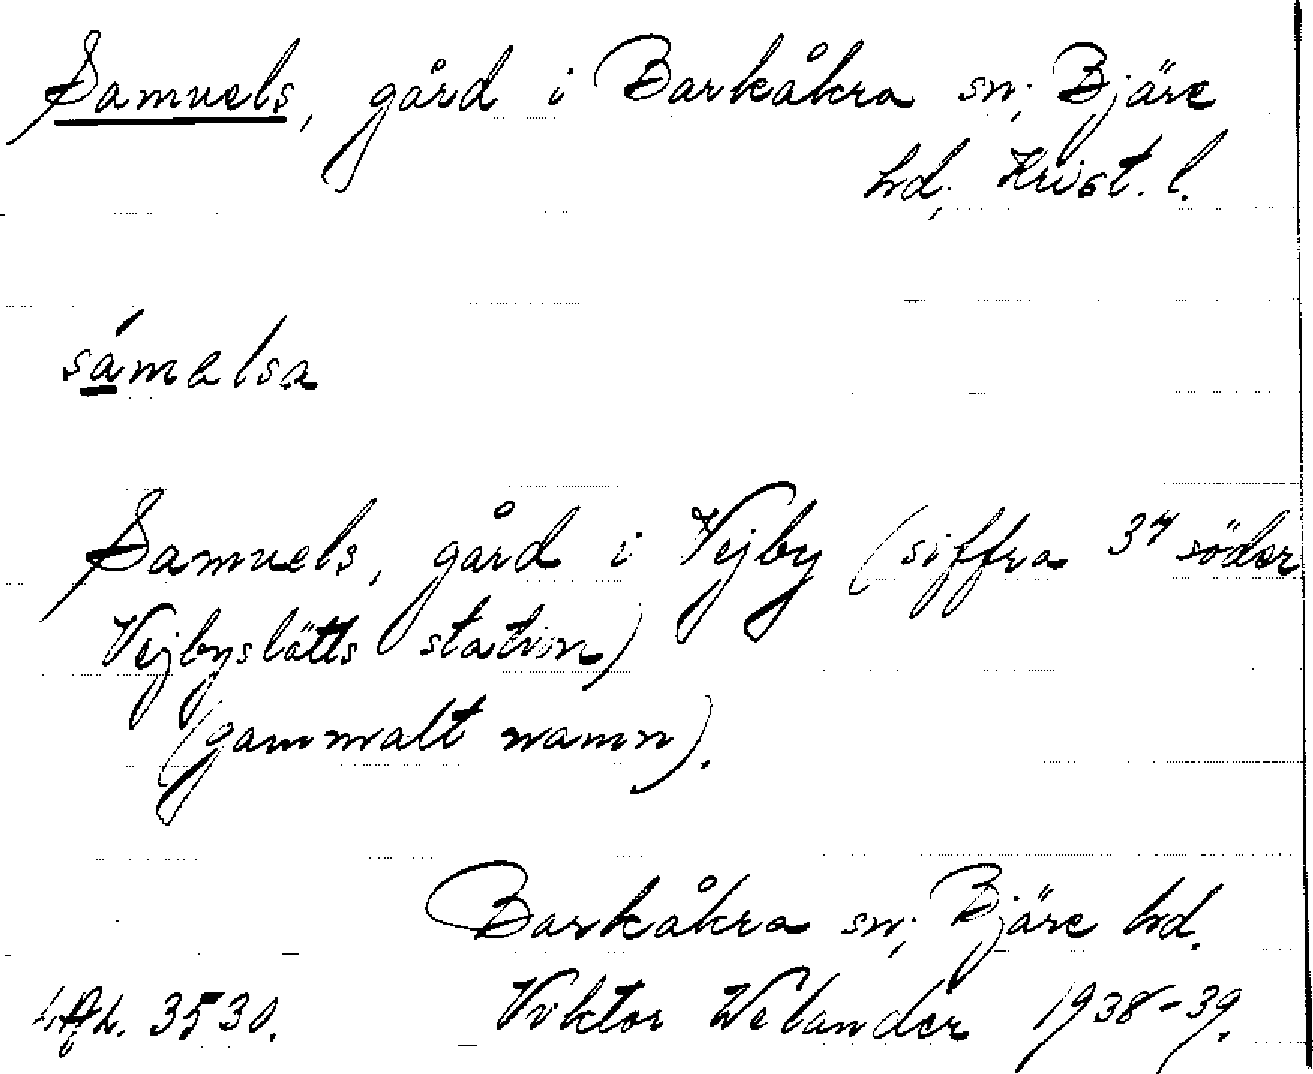 Samuels, gård i Barkåkra sn; Bjäre
hd; Krist. l.
sámalsa
Samuels, gård i Vejby (siffra 34 söder
Vejbyslätts station)
(gammalt namn).
Barkåkra sn; Bjäre hd.
3530. Viktor Welander 1938-39.